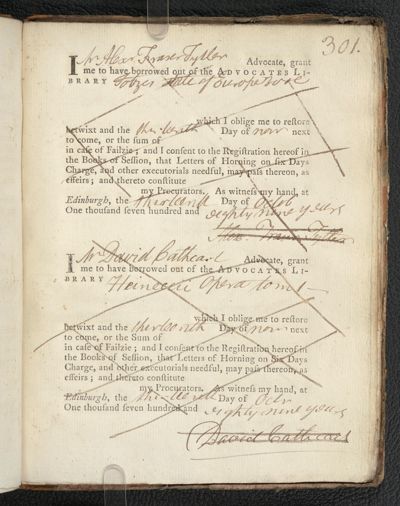 301.
I Mr Alexr Fraser Tytler Advocate, grant
me to have borrowed out of the ADVOCATES LI-
BRARY Tobzes State of Europe
which I oblige me to restore
betwixt and the thirteenth Day of novr next
to come, or the sum of
in case of Failzie; and I consent to the Registration hereof in
the Books of Session, that Letters of Horning on six Days
Charge, and other executorials needful, may pass thereon, as
effeirs; and thereto constitute
my Procurators. As witness my hand, at
Edinburgh, the thirteenth Day of Octob
One thousand seven hundred and eighty nine years
Alexr. Fraser Tytler
I Mr David Cathcart Advocate, grant
me to have borrowed out of the ADVOCATES LI-
BRARY Heineccii Opera tom 1
which I oblige me to restore
betwixt and the thirteenth Day of novr next
to come, or the Sum of
in case of Failzie; and I consent to the Registration hereof in
the Books of Session, that Letters of Horning on Six Days
Charge, and other executorials needful, may pass thereon, as
effeirs; and thereto constitute
my Procurators. As witness my hand, at
Edinburgh, the thirteenth Day of Octr
One thousand seven hundred and eighty nine years
David Cathcart